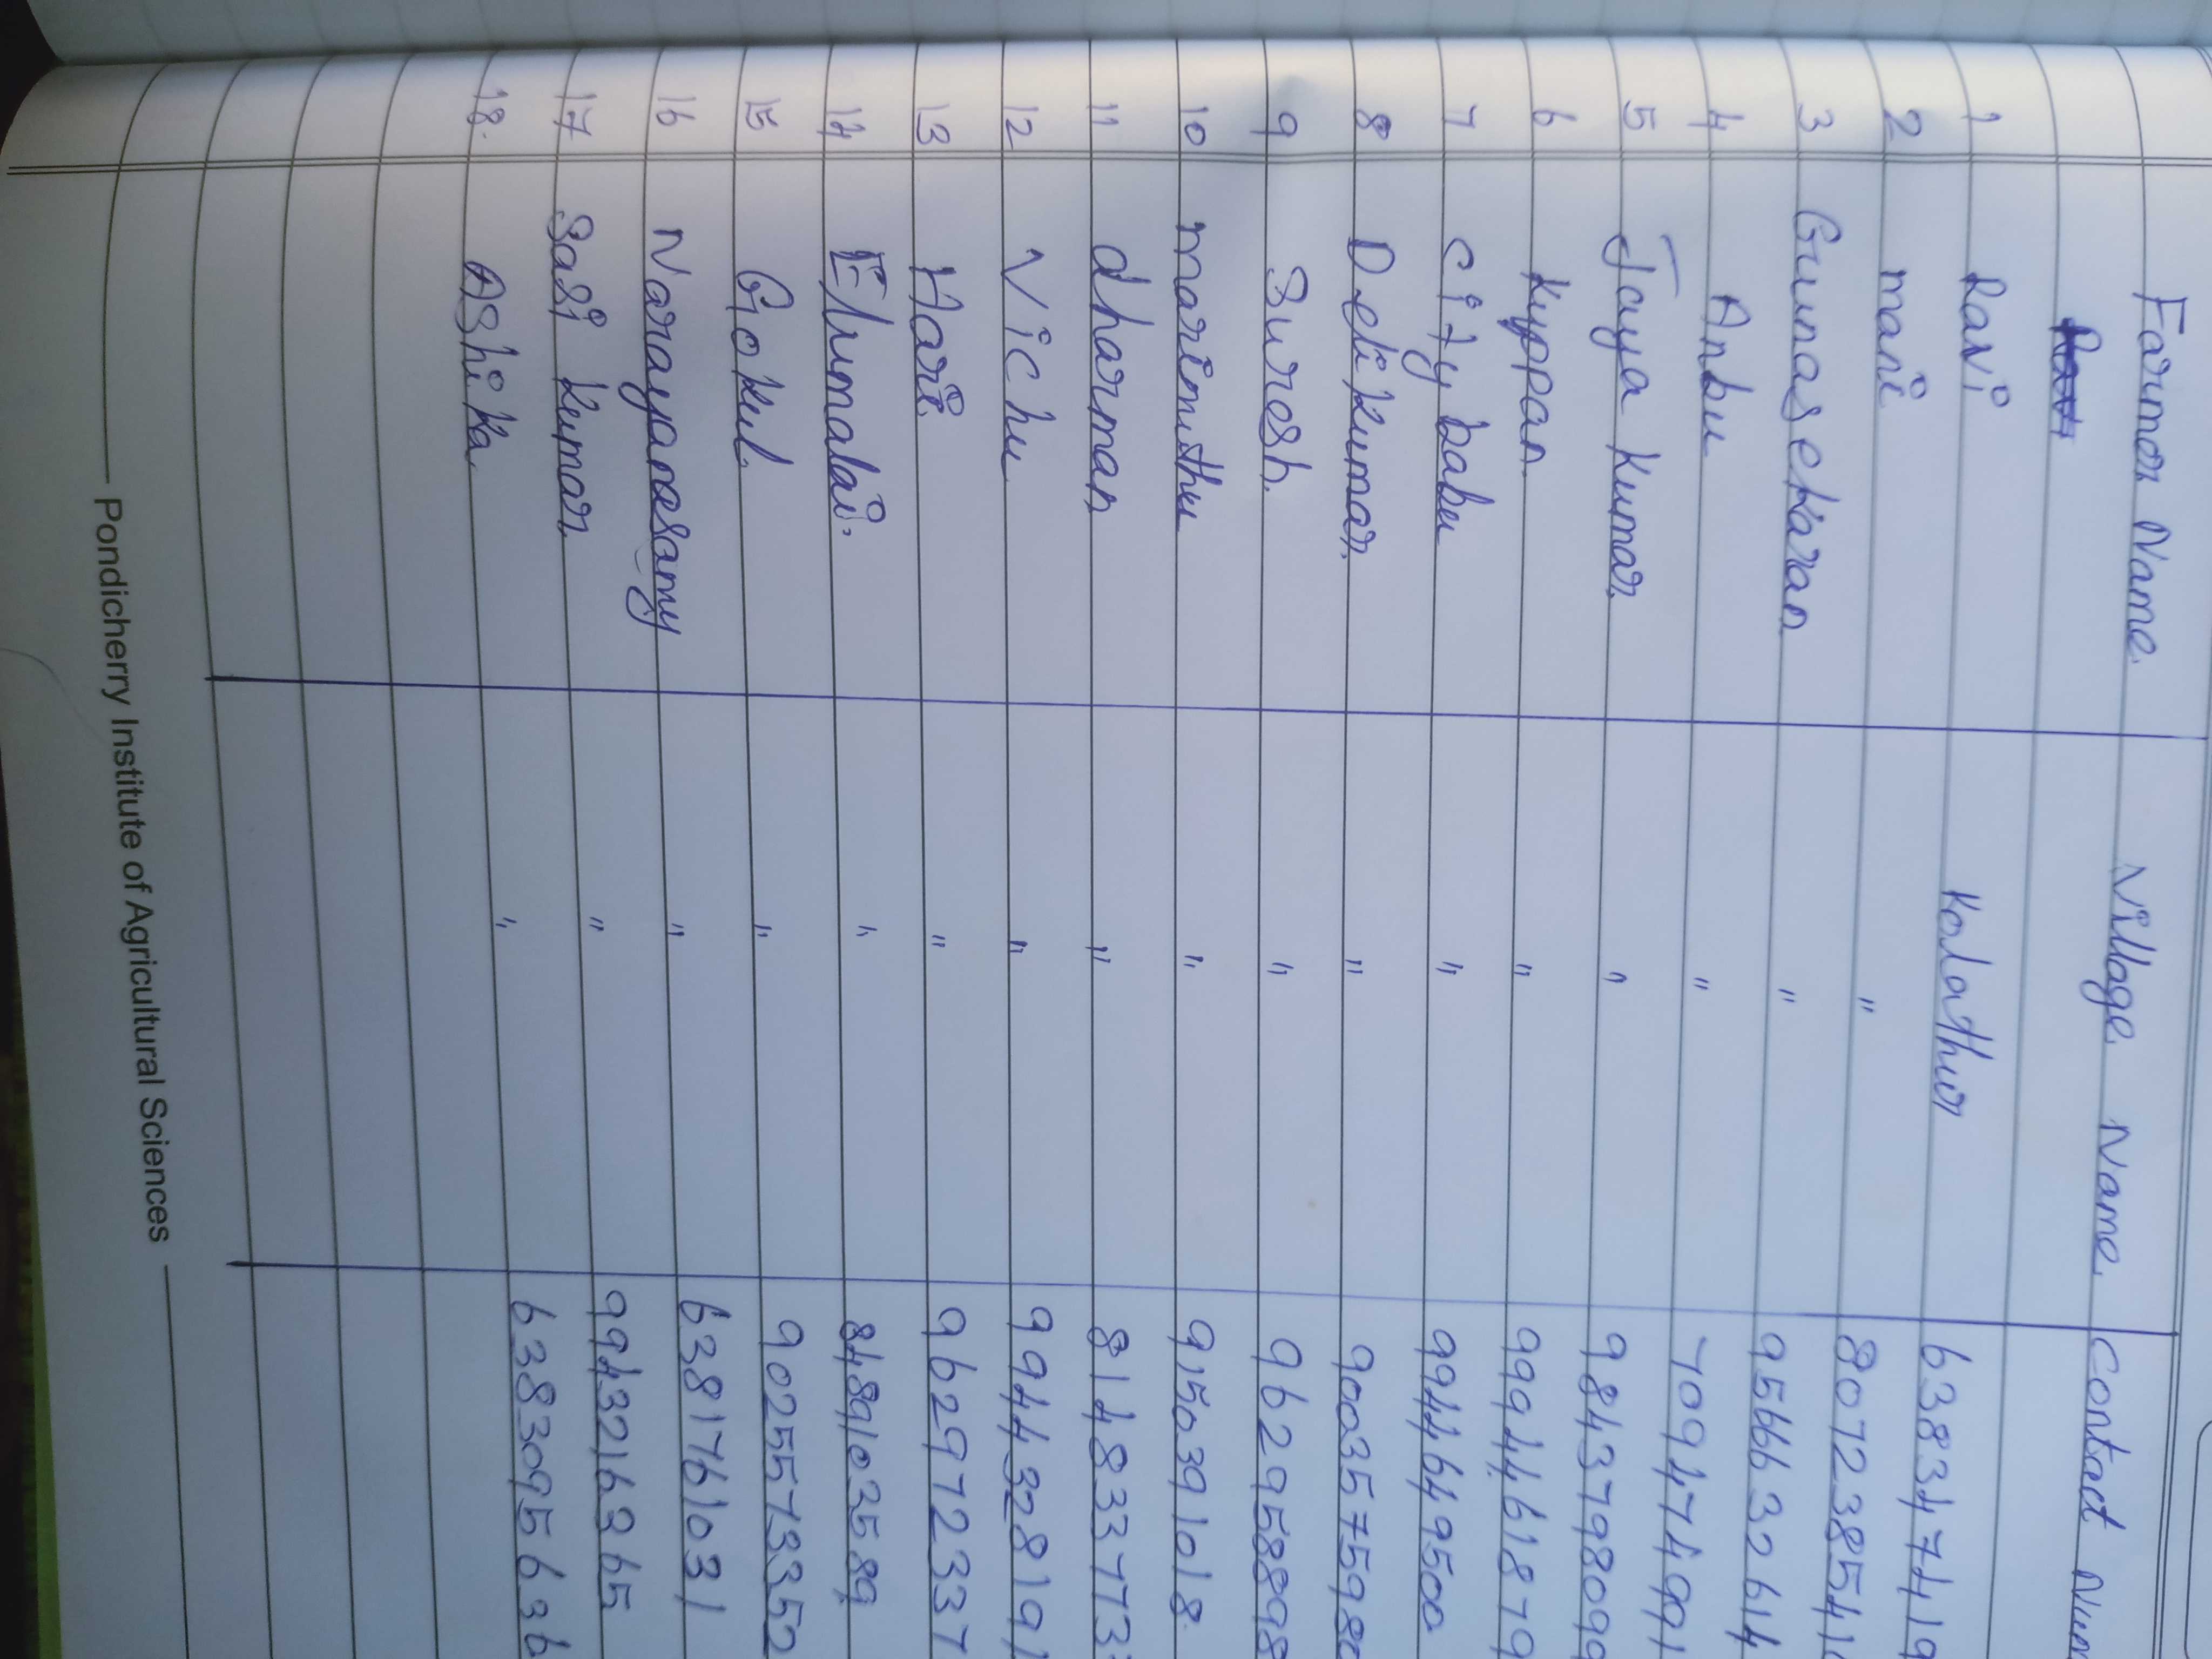 Farmer Name. Village Name. Contact Num
1 Ravi Kolathur 638347419
2 mani " 8072385410
3 Gunasekaran " 9566632614
4 Anbu " 7094774991
5 Jaya kumar. " 9843798099
6 kuppan " 9994461879
7 city babu " 9944649500
8 Deli kumar. " 9003575980
9 Suresh. " 9629958898
10 marimuthu " 9150391018
11 dharman " 814833773
12 Vichu " 9944328191
13 Hari. " 9629972337
14 Elumalai. " 8489103589
15 Gokul. " 9025573352
16 Narayanasamy " 6381761031
17 Sasi kumar. " 9943216365
18. AShika. " 6383095636
Pondicherry Institute of Agricultural Sciences